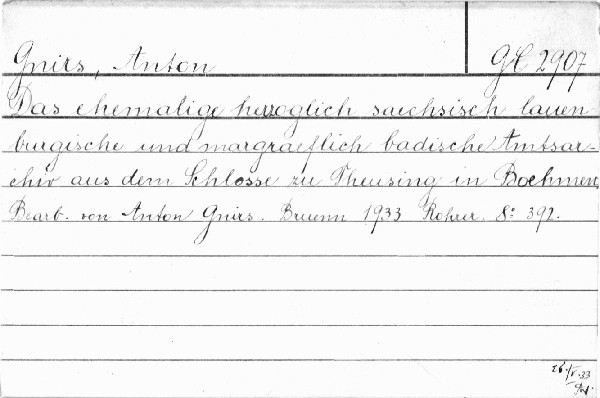 Gnirs, Anton GH 2907
Das ehemalige herzoglich saechsisch lauen-
burgische und margraeflich badische Amtsar-
chiv aus dem Schlosse zu Theusing in Boehmen.
Bearb. von Anton Gnirs. Bruenn 1933 Rohrer. 8° 392.
26./V.33